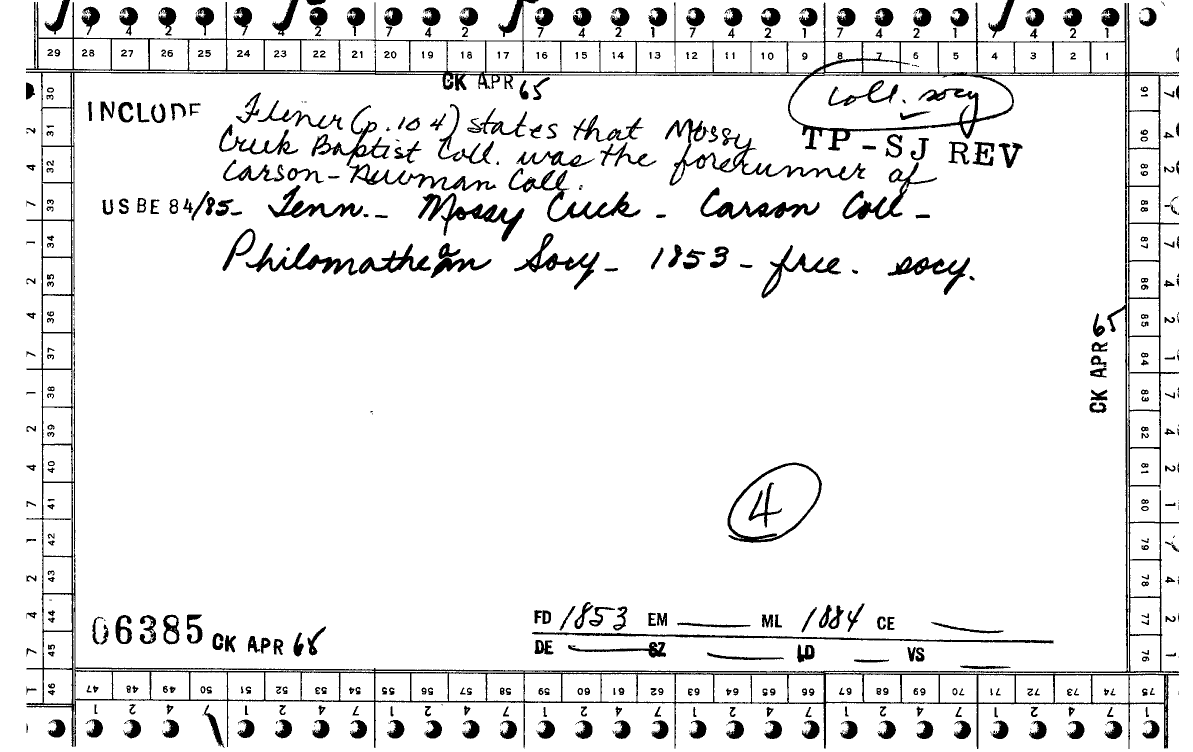 7 4 2 1 7 4 2 1 7 4 2 1 7 4 2 1 7 4 2 1 7 4 2 1 7 4 2 1
29 28 27 26 25 24 23 22 21 20 19 18 17 16 15 14 13 12 11 10 9 8 7 6 5 4 3 2 1
CK APR 65
coll. socy
INCLUDE Flener (p. 104) states that Mossy
Creek Baptist Coll. was the forerunner of
Carson-Newman Coll.
TP-SJ REV
US BE 84/85- Tenn. - Mossy Creek - Carson Coll -
Philomathean Socy - 1853 - free. socy.
CK APR 65
4
06385 CK APR 65
FD 1853 EM ML 1884 CE
DE SZ LD VS
30 31 32 33 34 35 36 37 38 39 40 41 42 43 44 45 46
91 90 89 88 87 86 85 84 83 82 81 80 79 78 77 76
47 48 49 50 51 52 53 54 55 56 57 58 59 60 61 62 63 64 65 66 67 68 69 70 71 72 73 74 75
1 2 4 7 1 2 4 7 1 2 4 7 1 2 4 7 1 2 4 7 1 2 4 7 1 2 4 7